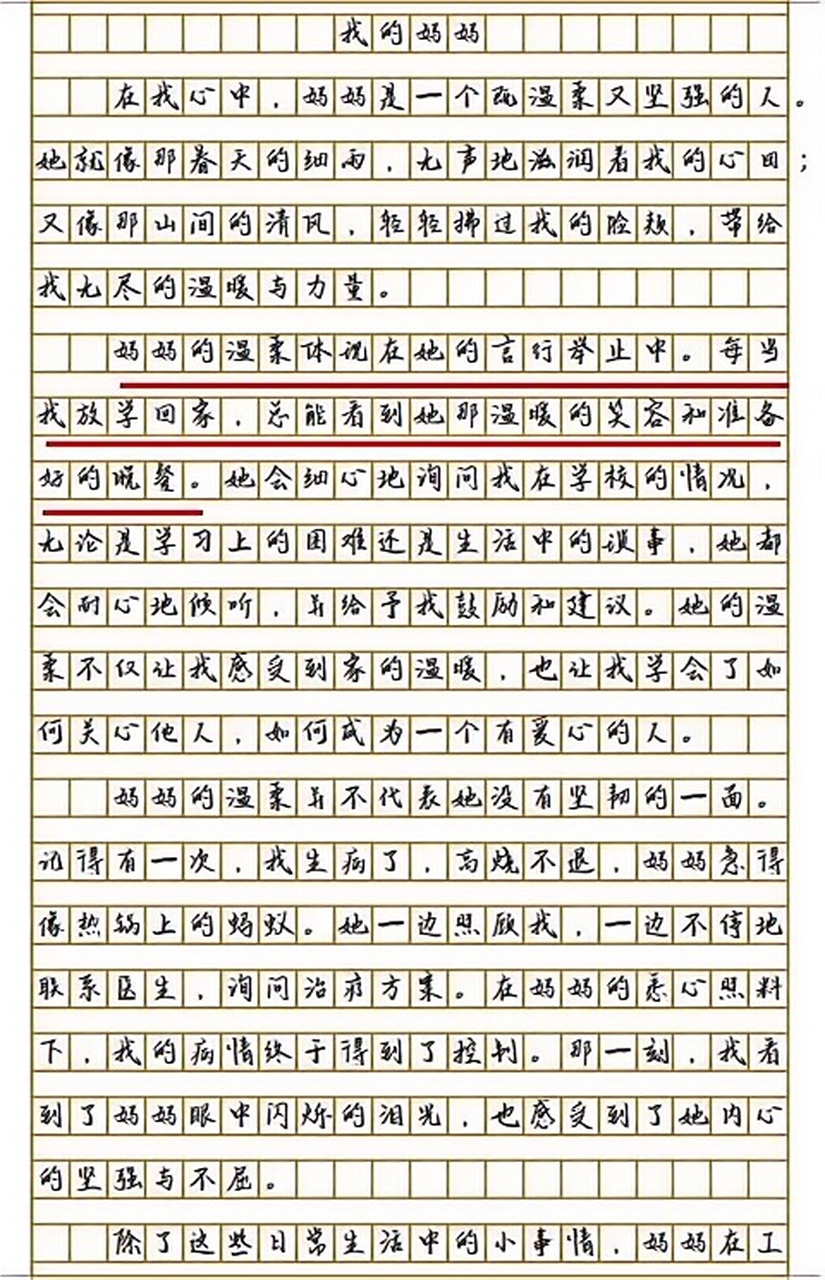 我的妈妈
在我心中，妈妈是一个既温柔又坚强的人。
她就像那春天的细雨，无声地滋润着我的心田；
又像那山间的清风，轻轻拂过我的脸颊，带给
我无尽的温暖与力量。
妈妈的温柔体现在她的言行举止中。每当
我放学回家，总能看到她那温暖的笑容和准备
好的晚餐。她会细心地询问我在学校的情况，
无论是学习上的困难还是生活中的琐事，她都
会耐心地倾听，并给予我鼓励和建议。她的温
柔不仅让我感受到家的温暖，也让我学会了如
何关心他人，如何成为一个有爱心的人。
妈妈的温柔并不代表她没有坚韧的一面。
记得有一次，我生病了，高烧不退，妈妈急得
像热锅上的蚂蚁。她一边照顾我，一边不停地
联系医生，询问治疗方案。在妈妈的悉心照料
下，我的病情终于得到了控制。那一刻，我看
到了妈妈眼中闪烁的泪光，也感受到了她内心
的坚强与不屈。
除了这些日常生活中的小事情，妈妈在工